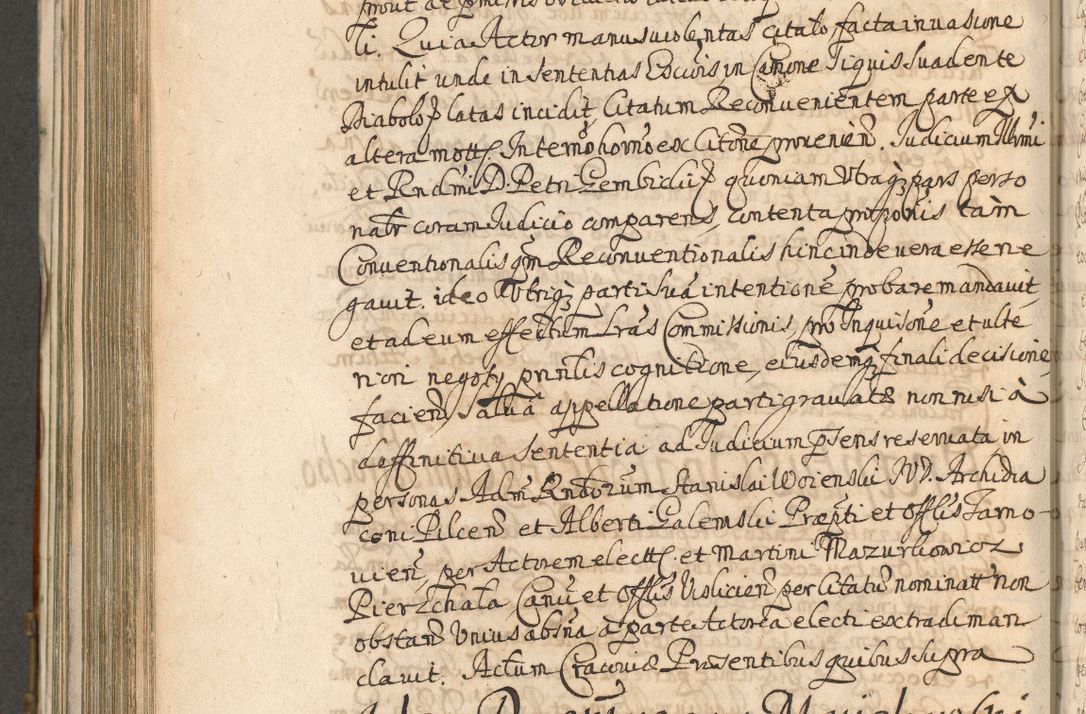 ti. Quia Actor manus violentas citato facta invasione
intulit unde in sententias Exc̃oris in Canone Si quis suadente
Diabolo p latas incidit, Citatum Reconvenientem parte ex
altera mott. In termõ hor̃no ex Citõne provenien̄. Judicium Illr̃mi
et Rndmi D. Petri Gembicki quoniam Utraqꝫ pars perso
nalr coram Judicio comparens, contenta propõnis tam
Conventionalis qm̃ Reconventionalis hincinde vera esse ne
gavit. ideo Utriqꝫ parti suã intentionẽ probare mandavit
et ad eum effectum Lrãs Commissionis, pro Inquisiõne et ulte
riori negoty prin̄lis cognitione, eiusdemqꝫ finali decisione
facien̄, salva appellatione parti gravatæ non nisi à
deffinitiva sententia ad Judicium p̃sens reservata in
personas Adm̃ Rndorum Stanislai Woienski JVD. Archidia
coni Pilcen̄ et Alberti Galemski Præpti et Off̃lis Tarno
vien̄, per Actorem electt. et Martini Mazurkowicz
Pierzchała, Canci et Off̃lis Visliciẽn per Citatũ nominatt non
obstan̄ Unius absña a parte Actorea electi extradi man
davit. Actum Cracoviæ Præsentibus quibus supra